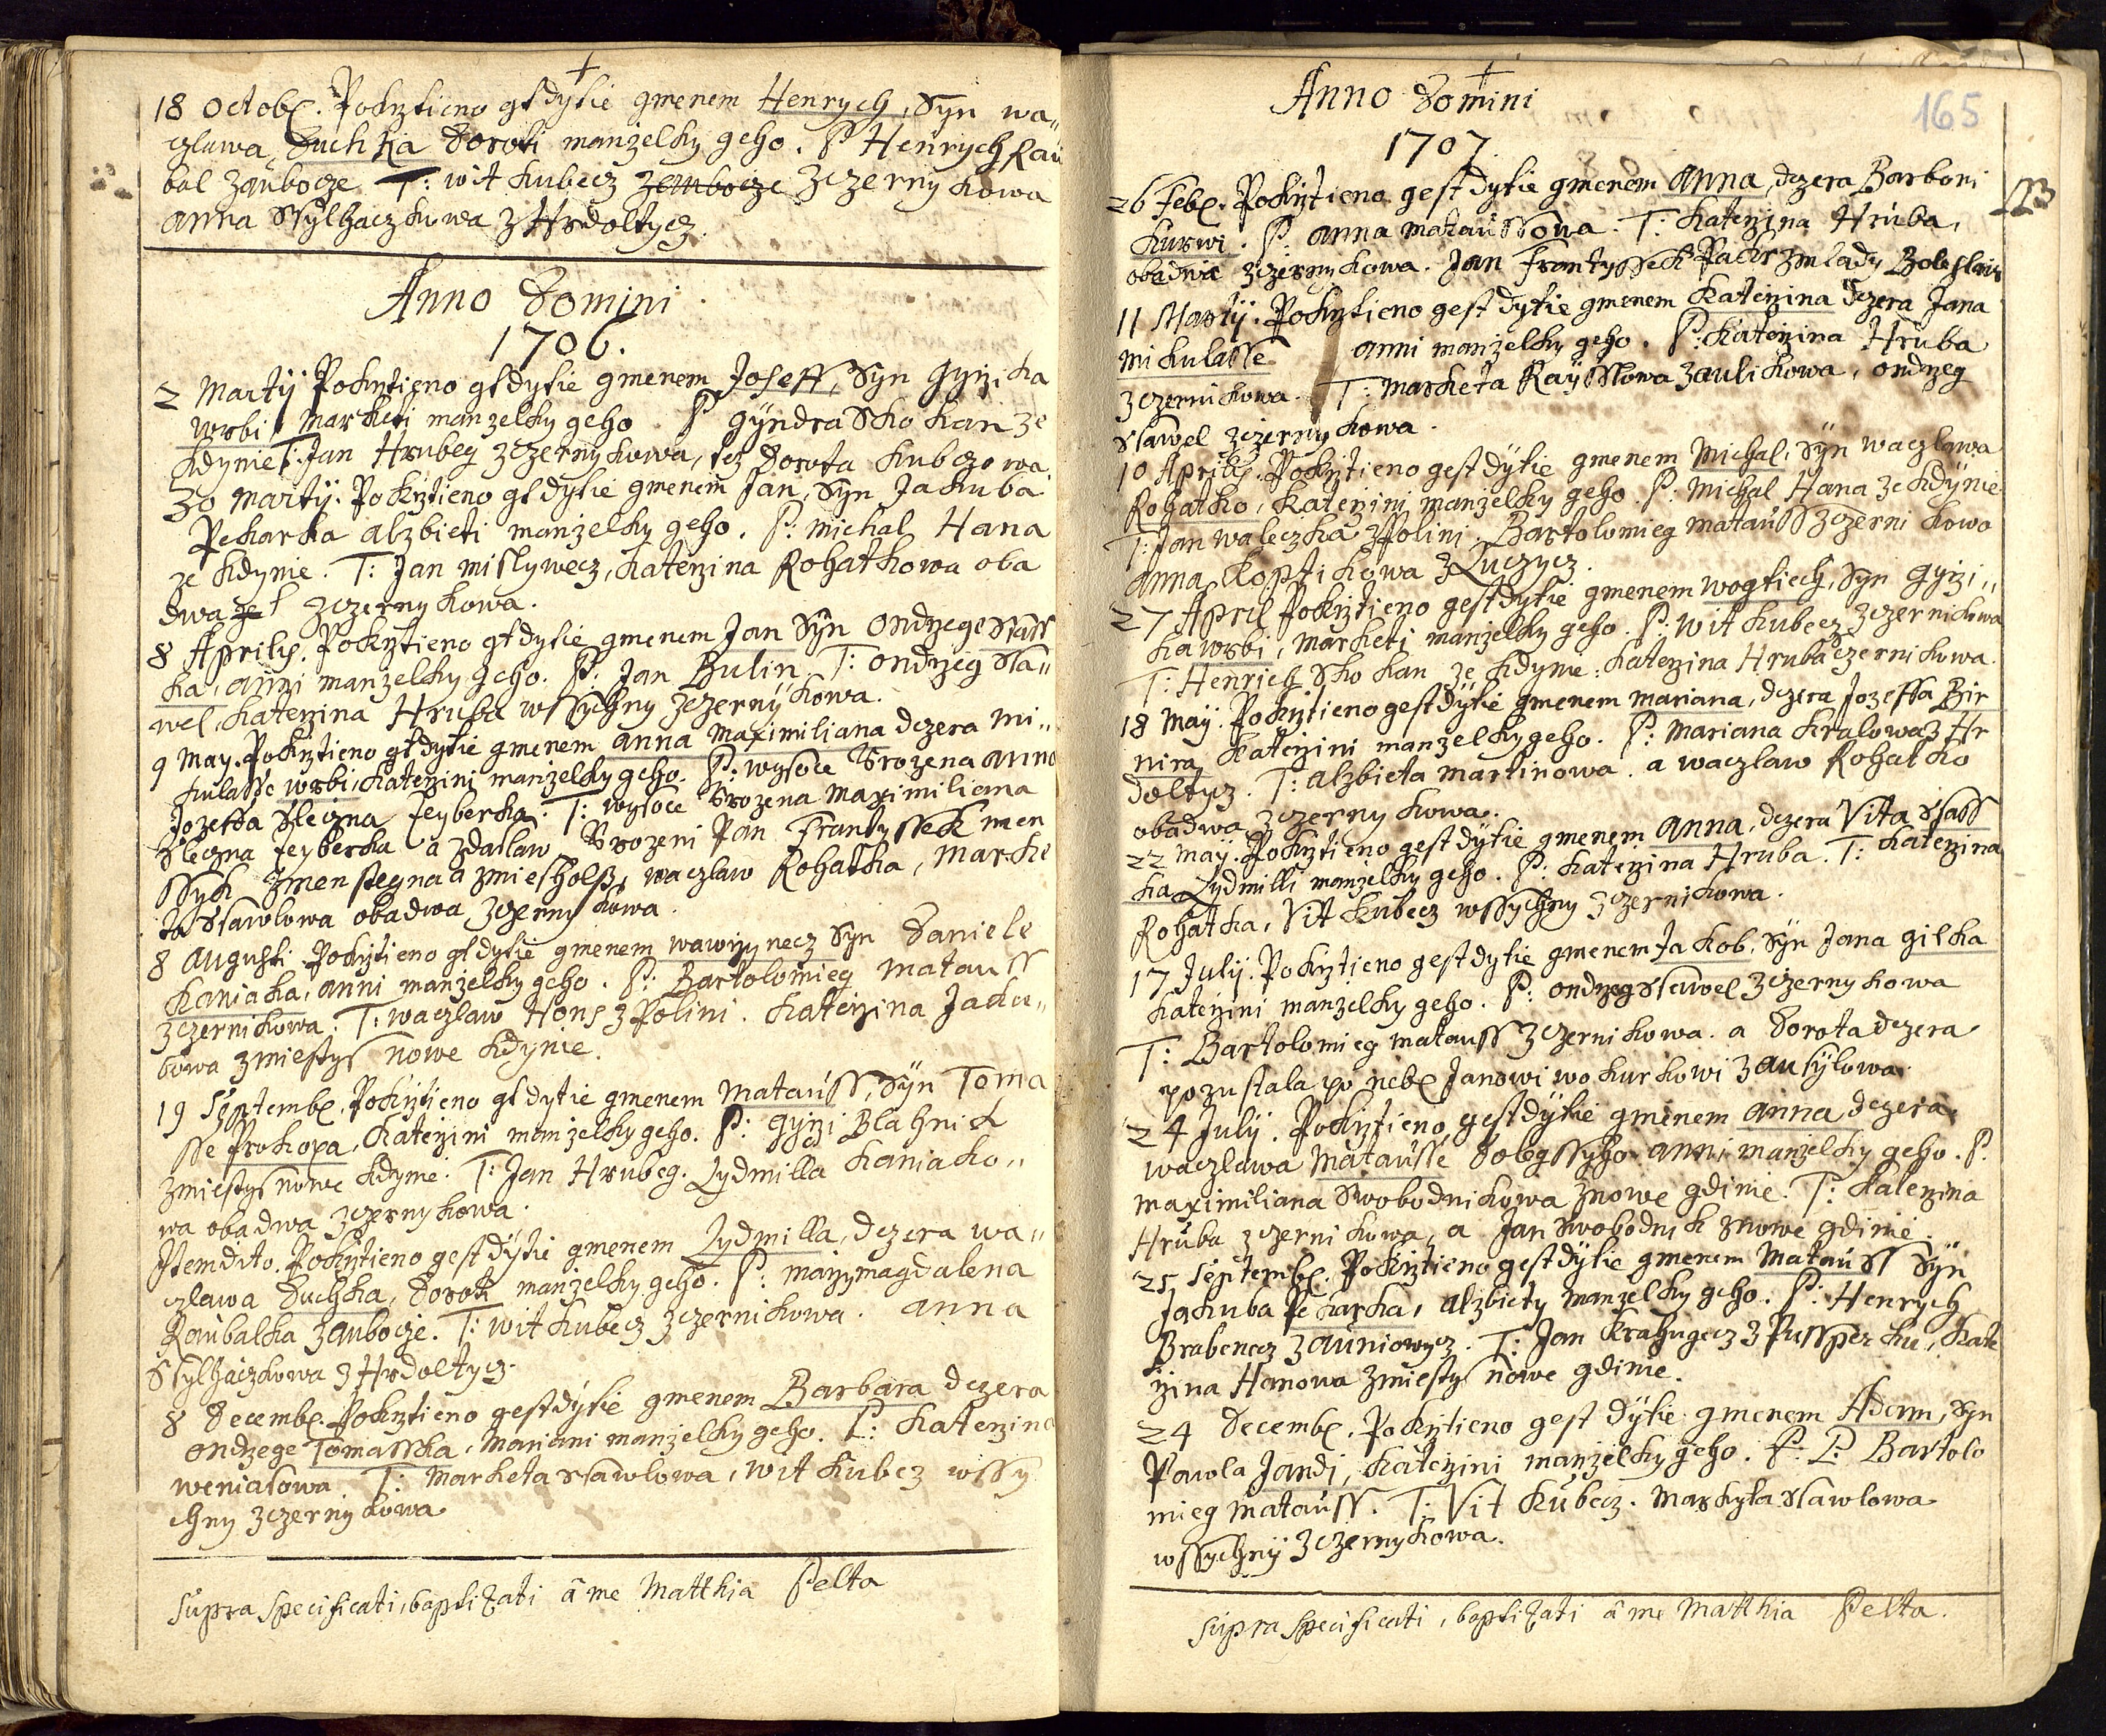 18 Octobr. Pokrztieno gt dytie gmenem Henrych, Syn wa„
czlawa, Duchka Doroti manzelky geho. P Henrych Rau
bal zaubocze T: wit kubecz zczerny kowa
anna Stylhaczkowa z Hrdoltycz.
Anno Domini
1706.
2 Martÿ Pokrztieno gt dytie gmenem Joseff, Syn Gyrzi ka
wrbi, Marketi manzelky geho. P Gÿndra Skokan ze
kdynie T: Jan Hrubey zczernykowa, tez Dorota kubczowa
30 Martÿ. Pokrztieno gt dytie gmenem Jan, Syn Jakuba
Pekarka alzbieti manzelky geho. P: Michal Hana
ze kdynie. T: Jan mislywecz, Katerzina Rohatkowa oba
dwa zczernykowa.
8 Aprilis. Pokrztieno gt dytie gmenem Jan Syn Ondrzege Stass
ka, anni manzelky geho. P. Jan Bulin T: ondrzeg Sla„
wel, Katerzina Hruba wssychny zczernÿkowa.
9 May. Pokrztieno gt dytie gmenem anna Maximiliana dczera Mi„
kulasse wrbi, Katerzini manzelky geho. P: wysoce Vrozena anna
Jozeffa Slecznа feyberka. T: wysoce Vrozena Maximiliana
Sleczna feyberka a zdaslaw Vrozeni Pan Frantyssek men
ssyk zmensteyna a zmiesholss, waczlaw Rohatka, Marke
ta Slawlowa obadwa zczerny kowa.
8 Augusti Pokrztieno gt dytie gmenem wawrzynecz Syn Daniele
Kaniaka, anni manzelky geho. P: Bartolomieg Matauss
zczernikowa. T: waczlaw Hons z Polini. Katerzina Jaku„
bowa zmiestys nowe kdynie.
19 Septembr. Pokrztieno gt dytie gmenem Matauss, Syn Toma
sse Prokopa, Katerzini manzelky geho. P: Gyrzi Blahnik
zmiestys nowe kdynie. T: Jan Hrubeg. Lydmilla Kaniako„
wa obadwa zczernykowa.
Item dito. Pokrztieno gest dÿtie gmenem Lydmilla, dczera wa„
czlawa Duchka, Doroti manzelky geho. P: marzymagdalena
Raubalka zaubocze. T: wit kubecz zczernikowa. anna
Stylhaczkowa z Hrdoltycz.
8 Decembr. Pokrztieno gest dÿtie gmenem Barbara dczera
ondrzege Tomasska, Mariani manzelky geho. P: Katerzina
weniasowa. T: Marketa Slawlowa, wit kubcz wssy
chny zczerny kowa
Supra specificati, baptizati â me Matthia Pelta
Anno Domini
1707.
165
113
26 Febr. Pokrztieno gest dytie gmenem Anna, dczera Barboni
Kurwi. P. anna mataussowa. T: Katerzina Hruba,
obadwie zczernykowa. Jan Frantyssek Pachr zmlady Boleslaw
11 Martÿ. Pokrztieno gest dytie gmenem Katerzina dczera Jana
Mikulasse anni manzelky geho. P: Katerzina Hruba
zczernikowa. T: Marketa Raÿsslowa zaulikowa, ondrzeg
Slawel zczernykowa.
10 Aprilis. Pokrztieno gest dÿtie gmenem Michal, Syn waczlawa
Rohatko, Katerzini manzelky geho. P: Michal Hana ze kdÿnie
T: Jan waleczka z Polini. Bartolomieg matauss zczerni kowa
anna Koptikowa z Luczycz.
27 April Pokrztieno gest dytie gmenem wogtiech, Syn Gyrzi„
ka wrbi, Marketi manzelky geho. P. wit kubecz zczernikowa
T: Henrich Skokan ze kdynie: Katerzina Hruba zczernikowa.
18 Maÿ. Pokrztieno gest dÿtie gmenem Mariana, dczera Jozeffa Bir
nira Katerzini manzelky geho. P: Mariana Kralowa z Hr
doltycz. T: alzbieta Martinowa. a waczlaw Rohatko
obadwa zczernykowa.
22 Maÿ. Pokrztieno gest dytie gmenem Anna, dczera Vita Stass
ka Lydmilli manzelky geho. P: Katerzina Hruba. T: Katerzina
Rohatka, Vit Kubecz wssychny zczernikowa.
17 Julÿ. Pokrztieno gest dytie gmenem Jakob, Sÿn Jana gilka
Katerzini manzelky geho. P: Ondrzeg Slawel zczernykowa
T: Bartolomieg matauss zczernikowa. a Dorota dczera
pozustala po nebr Janowi wokurkowi zausylowa.
24 Julÿ. Pokrztieno gest dÿtie gmenem anna dczera
waczlawa Matausse Dolegssyho anni manzelky geho. P.
Maximiliana Swobodnikowa znowe gdinie. T: Katerzina
Hruba zczernikowa, a Jan Swobodnik znowe gdinie.
25 Septembr. Pokrztieno gest dÿtie gmenem Matauss Sÿn
Jakuba Pekarka, alzbiety manzelky geho. P: Henrych
Brabenecz zauniowycz. T: Jan Krahugecz z Pussperku, Kate
rzina Hanowa zmiestys nowe gdinie.
24 Decembr. Pokrztieno gest dÿtie gmenem Adam, Syn
Pawla Jandi, Katerzini manzelky geho. P: P: Bartolo
mieg matauss. T: Vit Kubecz. Markyta Slawlowa
wssychnÿ zczernykowa.
Supra specificati, baptizati â me Matthia Pelta.